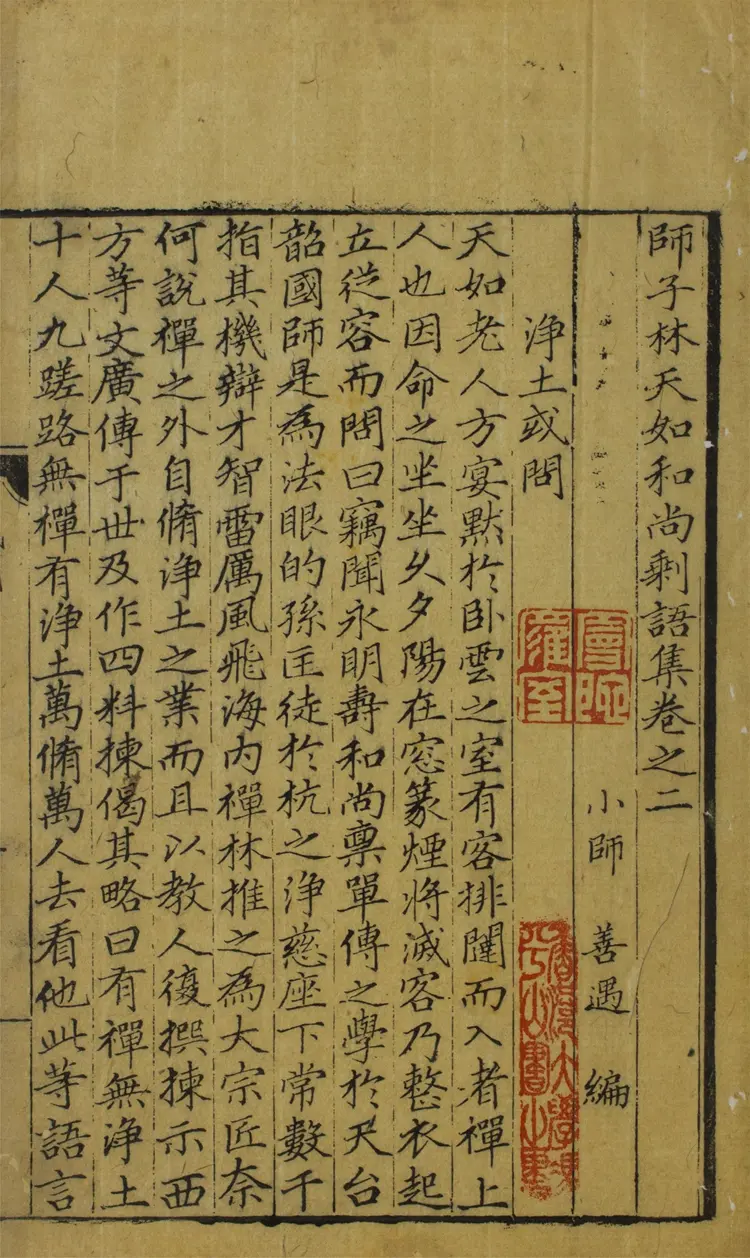 師子林天如和尚剩語集卷之二
小師 善遇 編
淨土或問
天如老人方宴默於卧雲之室有客排闥而入者禪上
人也因命之坐坐久夕陽在窓篆煙將滅客乃整衣起
立從容而問曰竊聞永明壽和尚稟單傳之學於天台
韶國師是為法眼的孫匡徒於杭之淨慈座下常數千
指其機辯才智雷厲風飛海内禪林推之為大宗匠奈
何說禪之外自脩淨土之業而且以教人復撰揀示西
方等文廣傳于世及作四料揀偈其略曰有禪無淨土
十人九蹉路無禪有淨土萬脩萬人去看他此等語言